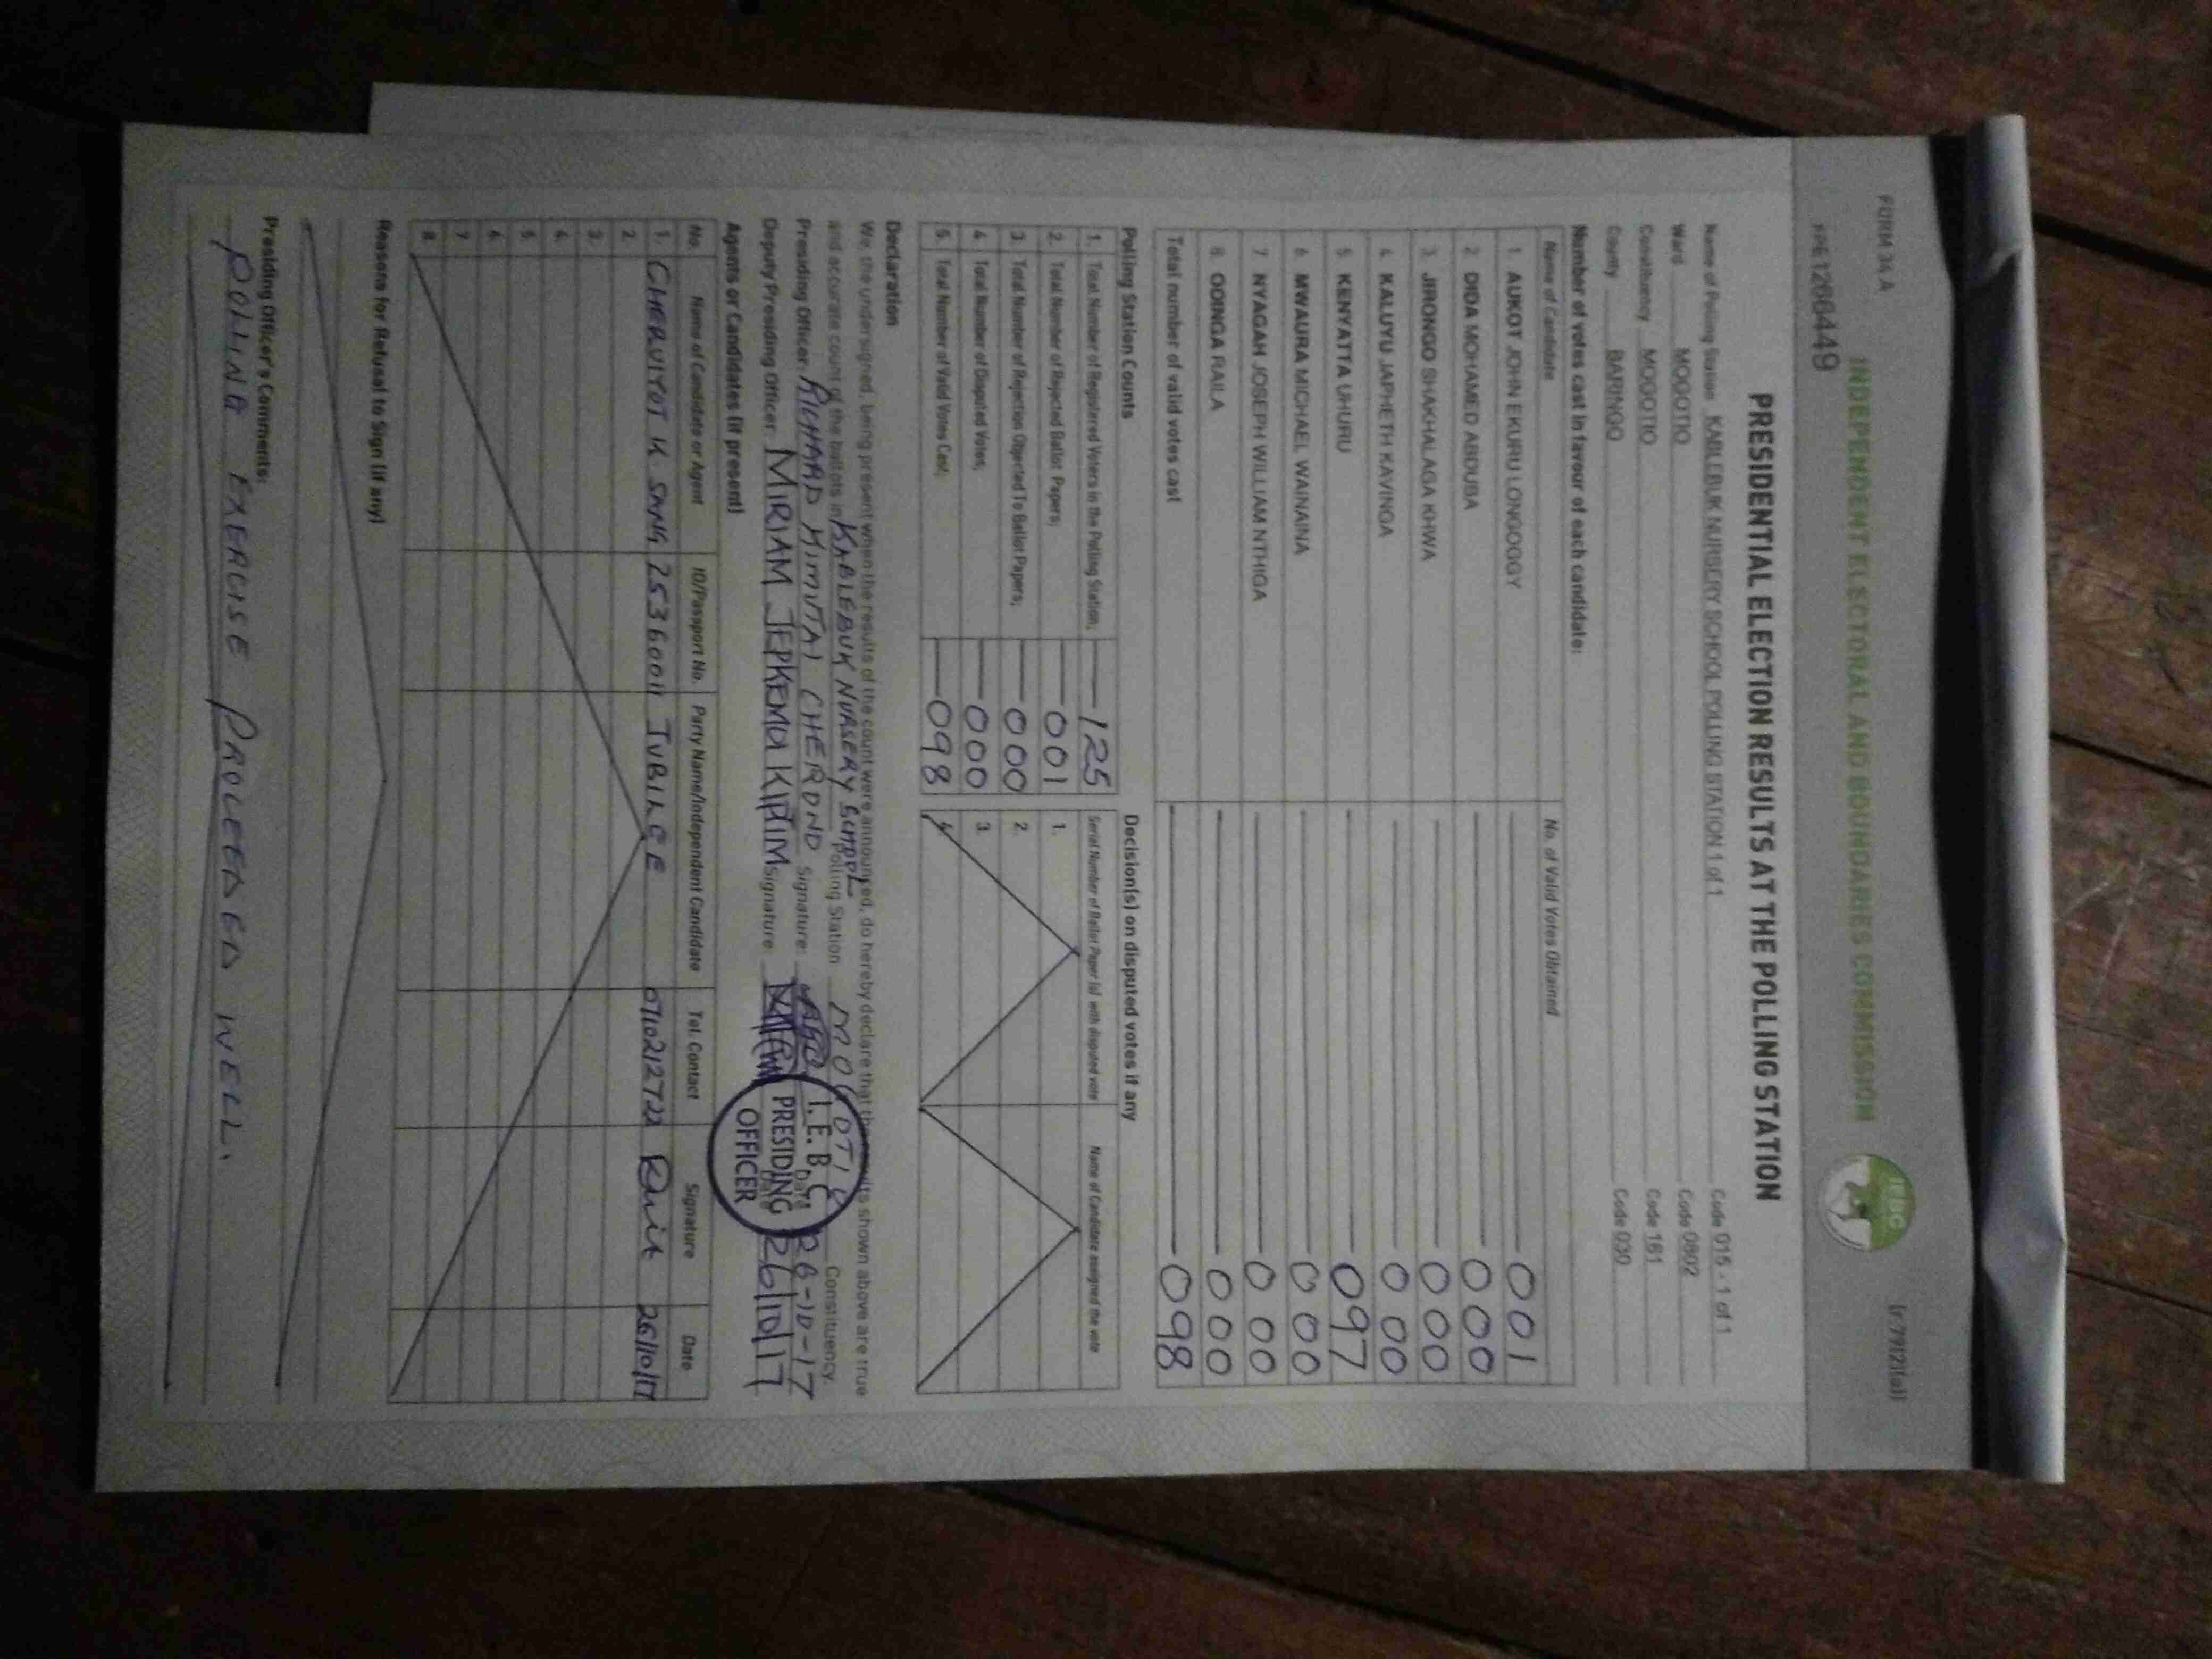 FORM 34 A
(r.79(2)(a))
INDEPENDENT ELECTORAL AND BOUNDARIES COMMISSION
IEBC
FPE1266449
PRESIDENTIAL ELECTION RESULTS AT THE POLLING STATION
Name of Polling Station KABLEBUK NURSERY SCHOOL POLLING STATION 1 of 1 Code 015 - 1 of 1
Ward MOGOTIO Code 0802
Constituency MOGOTIO Code 161
County BARINGO Code 030
Number of votes cast in favour of each candidate:
Name of Candidate No. of Valid Votes Obtained
1. AUKOT JOHN EKURU LONGOGGY 001
2. DIDA MOHAMED ABDUBA 000
3. JIRONGO SHAKHALAGA KHWA 000
4. KALUYU JAPHETH KAVINGA 000
5. KENYATTA UHURU 097
6. MWAURA MICHAEL WAINAINA 000
7. NYAGAH JOSEPH WILLIAM NTHIGA 000
8. ODINGA RAILA 000
Total number of valid votes cast 098
Polling Station Counts
1. Total Number of Registered Voters in the Polling Station; 125
2. Total Number of Rejected Ballot Papers; 001
3. Total Number of Rejection Objected To Ballot Papers; 000
4. Total Number of Disputed Votes; 000
5. Total Number of Valid Votes Cast; 098
Decision(s) on disputed votes if any
Serial Number of Ballot Paper (s) with disputed vote Name of Candidate assigned the vote
1.
2.
3.
4.
Declaration
We, the undersigned, being present when the results of the count were announced, do hereby declare that the results shown above are true
and accurate count of the ballots in KABLEBUK NURSERY SCHOOL Polling Station MOGOTIO Constituency.
Presiding Officer: RICHARD KIMUTAI CHEROND Signature: Date 26-10-17
Deputy Presiding Officer: MIRIAM JEPKEMOI KIPTIM Signature: Date 26/10/17
I.E.B.C
PRESIDING
OFFICER
Agents or Candidates (if present)
No. Name of Candidate or Agent ID/Passport No. Party Name/Independent Candidate Tel. Contact Signature Date
1. CHERUIYOT K SANG 25360011 JUBILEE 0710212722 26/10/17
2.
3.
4.
5.
6.
7.
8.
Reasons for Refusal to Sign (if any)
Presiding Officer's Comments:
POLLING EXERCISE PROCEEDED WELL.